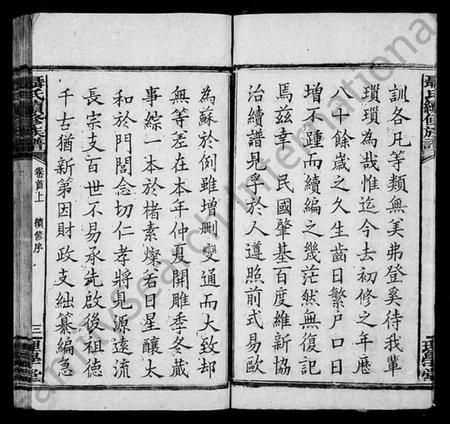 訓各凡等類無美弗登奚待我輩
瑣瑣為哉惟迄今去初修之年歷
八十餘歲之久生齒日繁戶口日
增不踵而續編之幾茫然無復記
焉茲幸 民國肇基百度維新協
治續譜見孚於人遵照前式易歐
為蘇於例雖增刪變通而大致却
無等差在本年仲夏開雕季冬蕆
事綜一本於楮素燦若日星釀太
和於門閭念切仁孝將見源遠流
長宗支百世不易承先啟後祖德
千古猶新第因財政支絀纂編急
聶氏續修族譜
卷首上 續修序
三
聶氏續修族譜
FamilySearch International